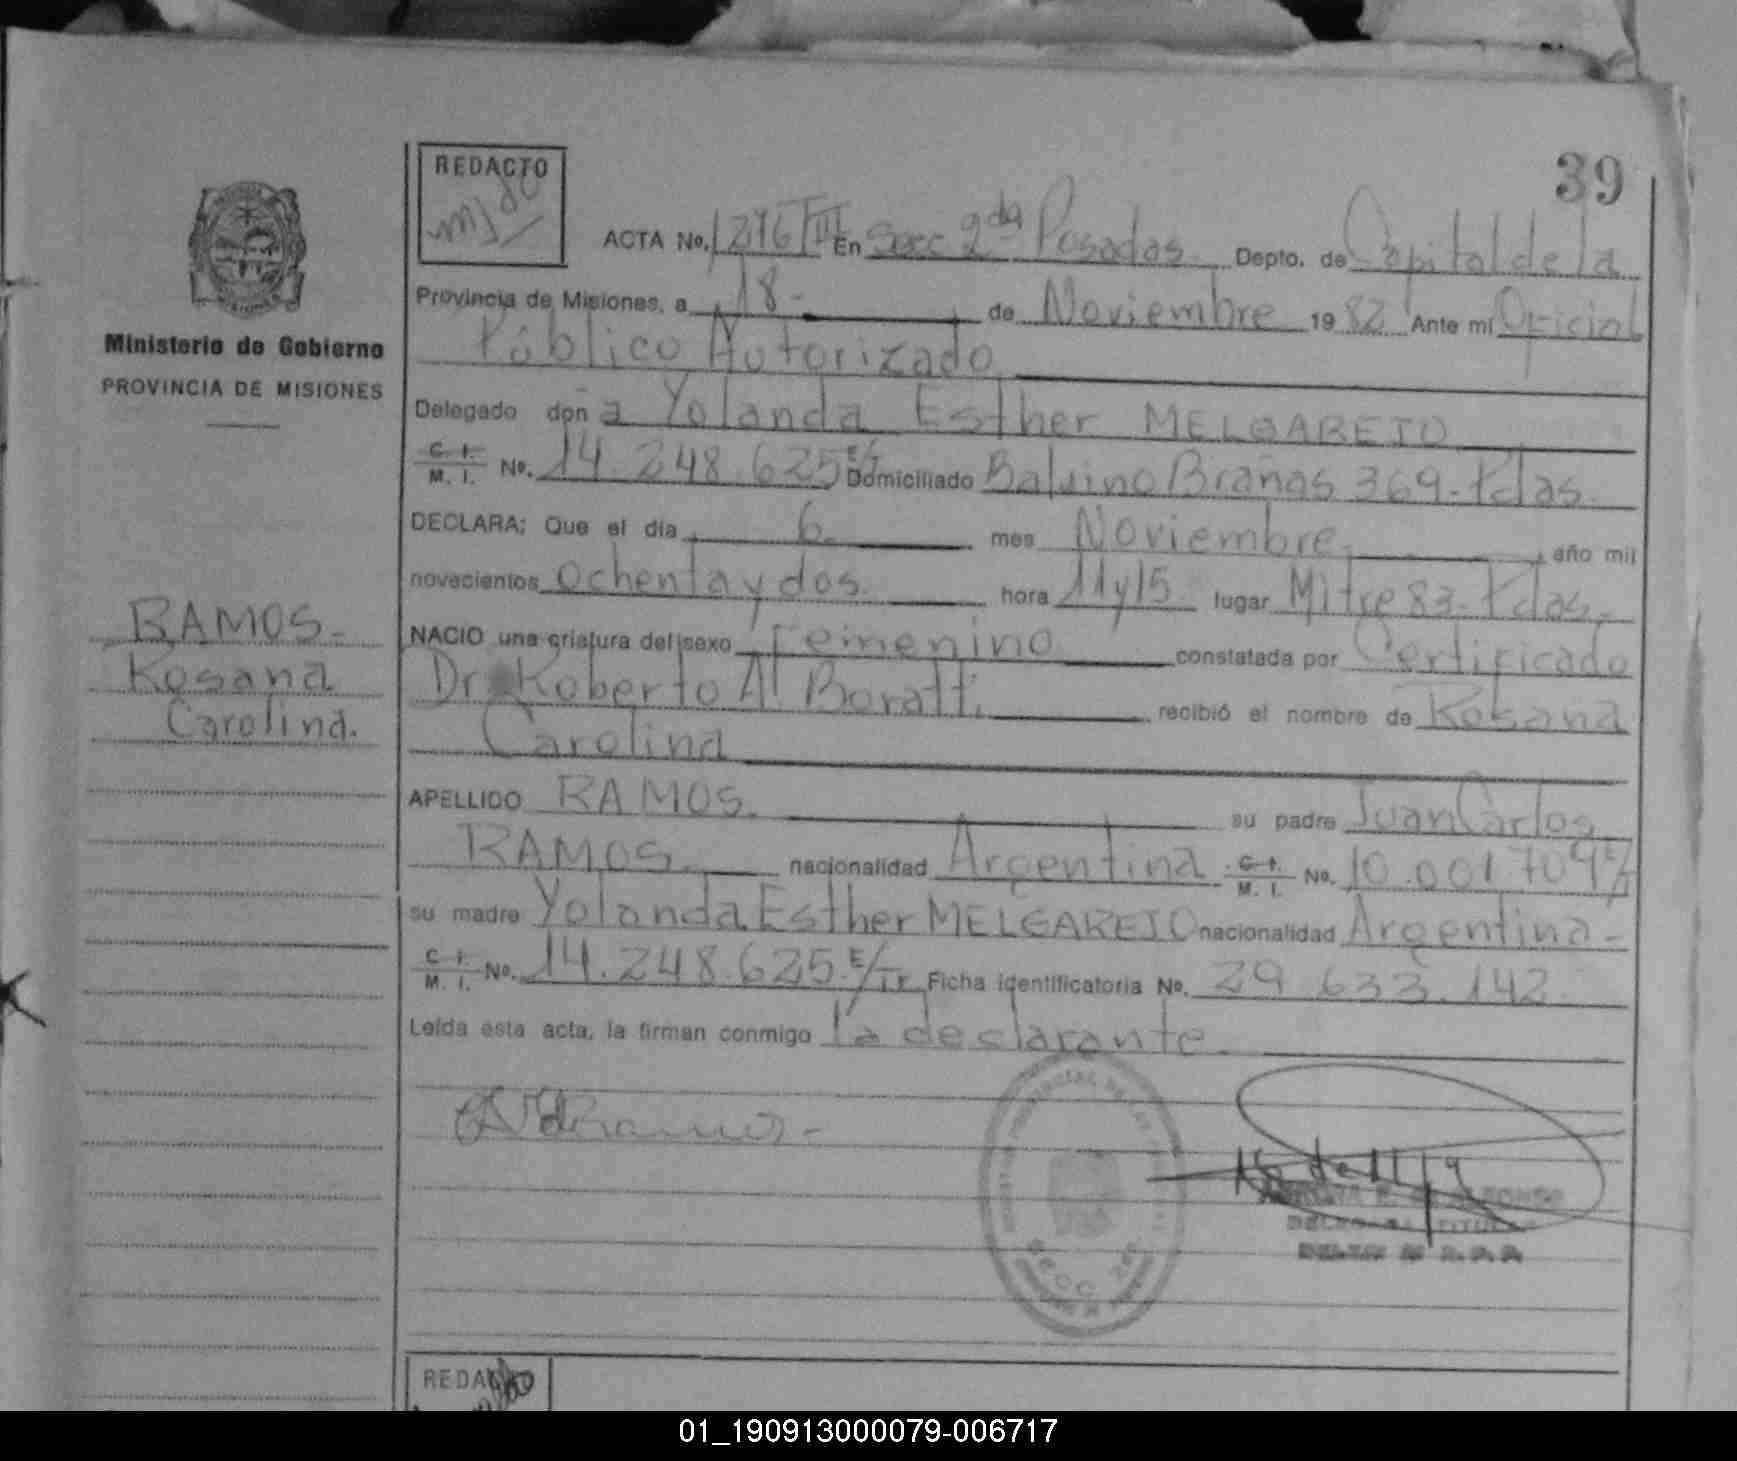 39
REDACTO
ACTA No. 1276 TIII En Secc 2da Posadas. Depto. de Capital de la
Provincia de Misiones, a 18- de Noviembre 1982 Ante mi Oficial
Público Autorizado
Ministerio de Gobierno
PROVINCIA DE MISIONES
Delegado don a Yolanda Esther MELGAREJO
C. I. M. I. No. 14.248.625 E/T Domiciliado Balvino Brañas 369-Pdas.
DECLARA: Que el día 6. mes Noviembre- año mil
novecientos ochenta y dos. hora 11y15 lugar Mitre 83-Pdas.
RAMOS-
Rosana
Carolina.
NACIO una criatura del sexo Femenino constatada por Certificado
Dr Roberto A. Boratti recibió el nombre de Rosana
Carolina
APELLIDO RAMOS. su padre Juan Carlos
RAMOS. nacionalidad Argentina C. I. M. I. No. 10.001.709
su madre Yolanda Esther MELGAREJO nacionalidad Argentina-
C. I. M. I. No. 14.248.625. E/Tr Ficha identificatoria No. 29.633.142.
Leída esta acta, la firman conmigo la declarante.
SECC. 2da
REDACTO
01_190913000079-006717